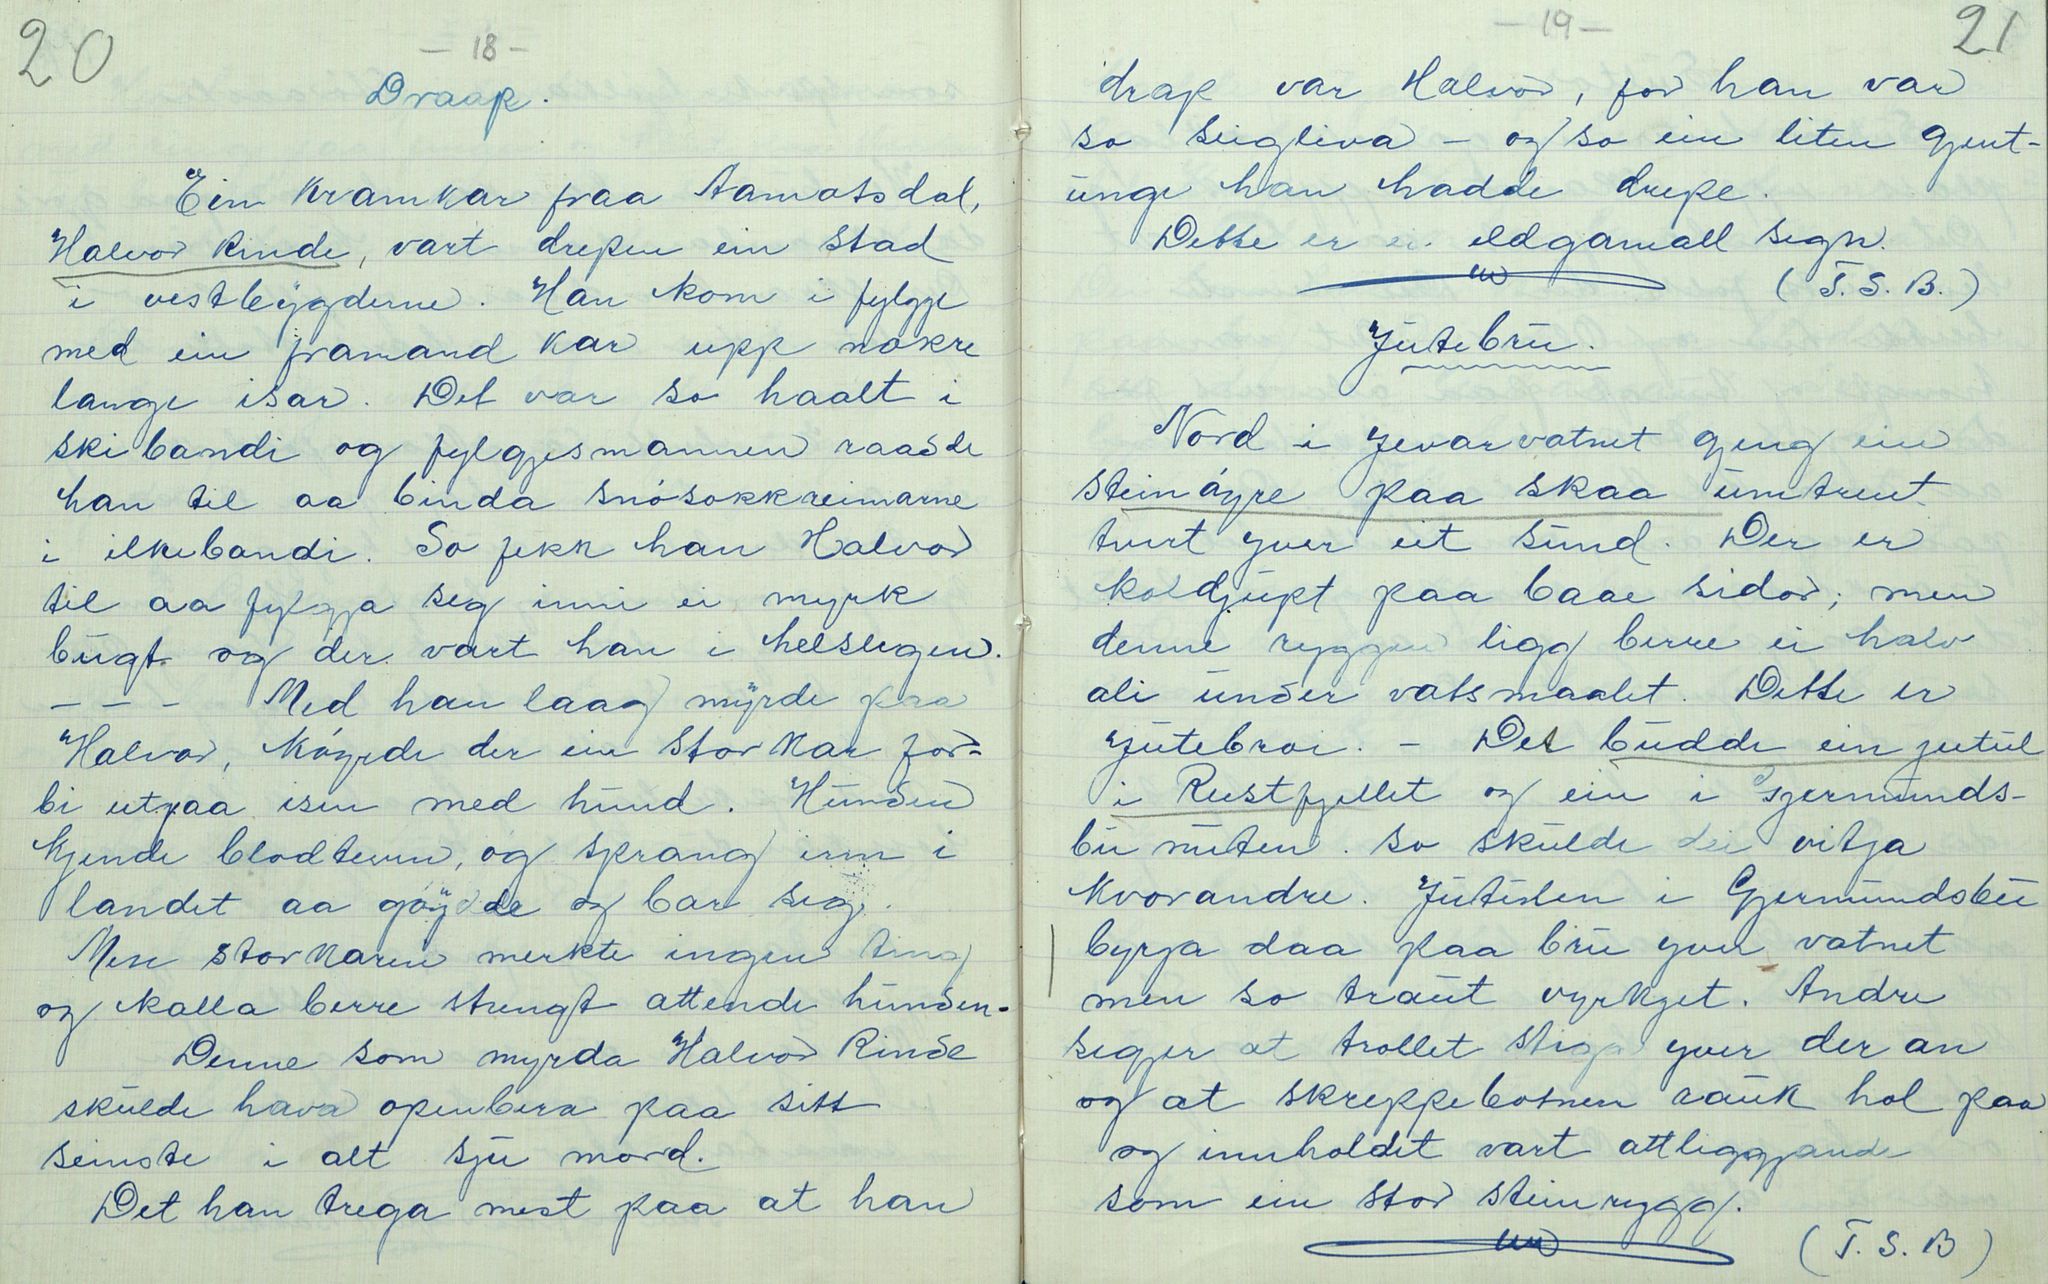 20
- 18 -
Draap.
Ein Kramkar fraa Aamotsdal,
Halvor Rinde, vart drepen ein stad
i vestbygderne. Han kom i fylgje
med ein framand kar upp nokre
lange isar. Det var so haalt i
skibandi og fylgjesmannen raadde
han til aa binda snósokkreimarne
i ilkebandi. So fekk han Halvor
til aa fylgja seg inni ei myrk
bugt og der vart han i helslegen.
- - - Med han laag myrde paa
Halvor, kóyrde der ein storkar for-
bi utpaa isen med hund. Hunden
kjende blodteven, og sprang inn i
landet aa góydde og bar seg.
Men storkaren merkte ingen ting
og kalla berre strengt attende hunden.
Denne som myrda Halvor Rinde
skulde hava openbera paa sitt
seinste i alt sju mord.
Det han trega mest paa at han
- 19 -
21
drap var Halvor, for han var
so seigliva - og so ein liten gjent-
unge han hadde drepe.
Dette er ei eldgamall segn.
(T. S. B.)
Jutebru.
Nord i Jevarvatnet gjeng ein
steinóyre paa skaa umtrent
tvert yver eit sund. Der er
koldjupt paa baae sidor; men
denne ryggen ligg berre ei halv
ali under vatsmaalet. Dette er
jutebroi. - Det budde ein jutul
i Rustfjellet og ein i Gjermunds-
bu nuten. so skulde dei vitja
kvorandre. Jutulen i Gjermundsbu
byrja daa paa bru yver vatnet
men so traut vyrkjet. Andre
segjer at trollet stiga yver der an
og at skreppebotnen rauk hol paa
og innholdet vart attliggjande
som ein stor steinrygg.
(T. S. B)